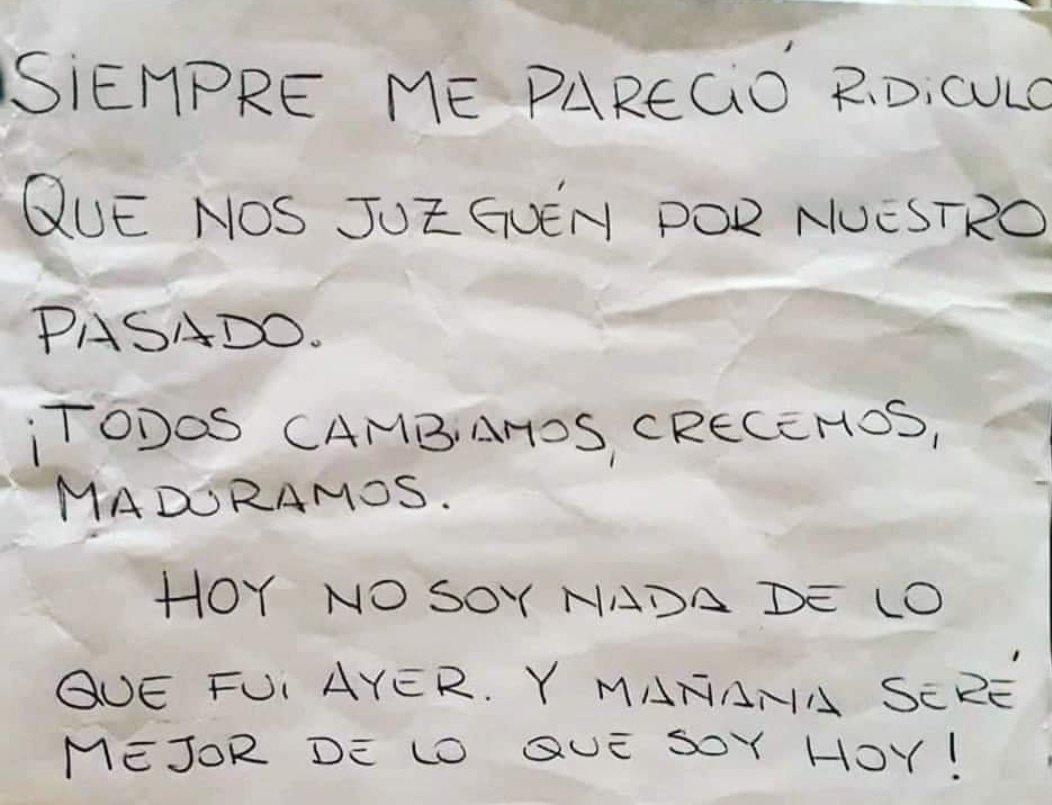 SIEMPRE ME PARECIÓ RIDICULO
QUE NOS JUZGUÉN POR NUESTRO
PASADO.
¡TODOS CAMBIAMOS, CRECEMOS,
MADURAMOS.
HOY NO SOY NADA DE LO
QUE FUI AYER. Y MAÑANA SERÉ
MEJOR DE LO QUE SOY HOY!